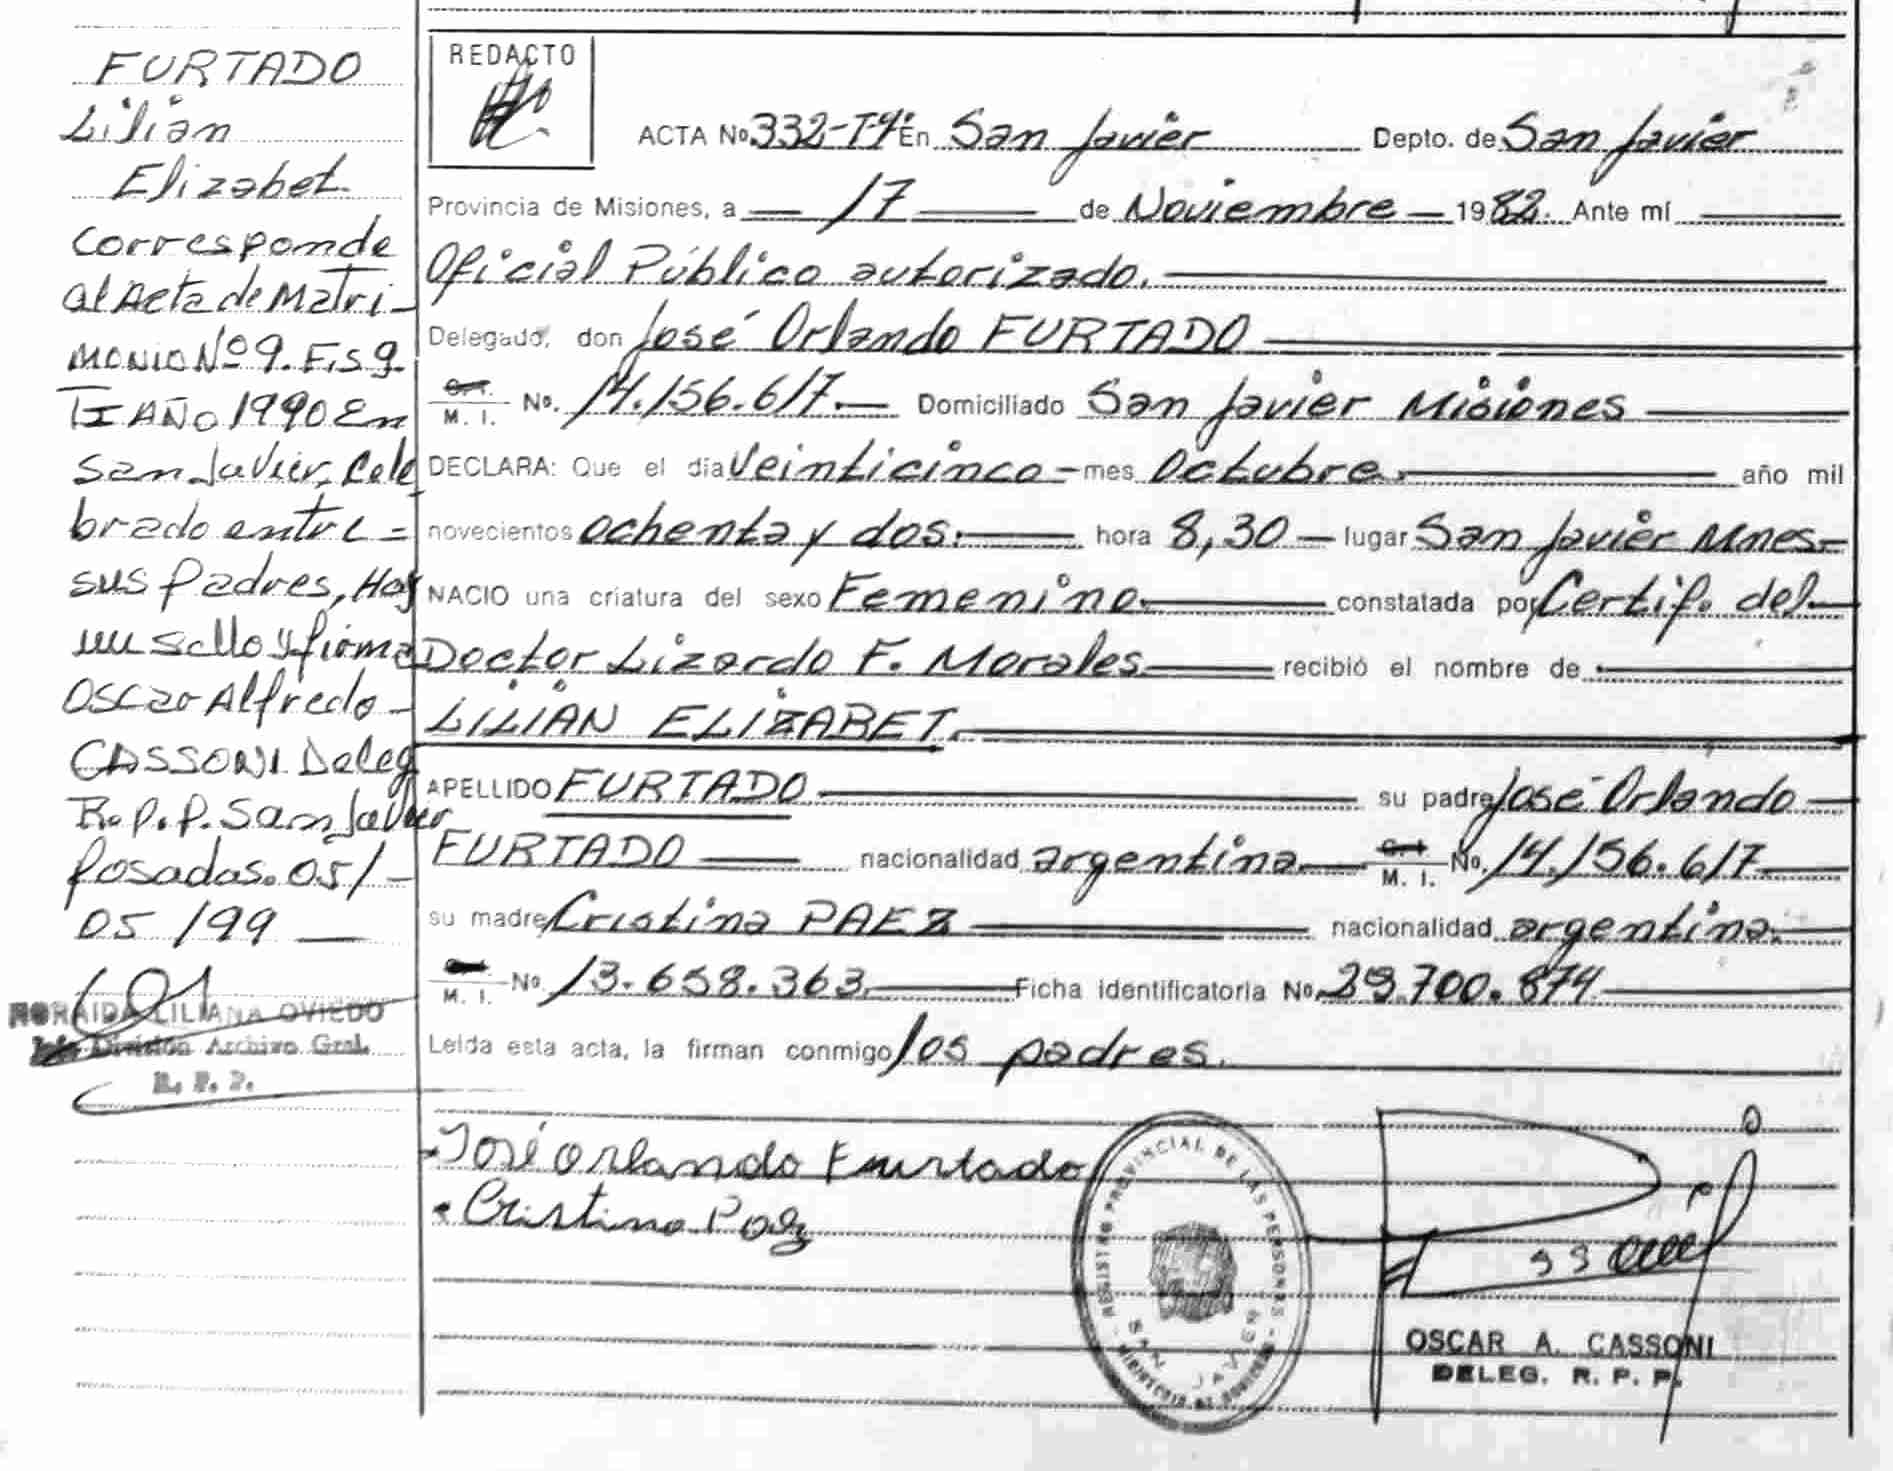 FURTADO
Lilian
Elizabet.
Corresponde
al Acta de Matri-
monio Nº 9. Fis 9.
TI AÑO 1990 En
San Javier, Cele
brado entre =
sus Padres, Hay
un sello y firma
Oscar Alfredo -
CASSONI Deleg
R.P.P. San Javier
Posadas. 05/-
05/99 —
NORAIDA LILIANA OVIEDO
Jefe División Archivo Gral.
R. P. P.
REDACTO
ACTA Nº 332-Tº En San Javier Depto. de San Javier
Provincia de Misiones, a — 17 — de Noviembre — 1982. Ante mí —
Oficial Público autorizado. —
Delegado, don José Orlando FURTADO —
M. I. Nº. 14.156.617. — Domiciliado San Javier Misiones —
DECLARA: Que el día Veinticinco - mes Octubre. — año mil
novecientos ochenta y dos. — hora 8,30 — lugar San Javier Mnes-
NACIO una criatura del sexo Femenino. — constatada por Certif. del —
Doctor Lizardo F. Morales — recibió el nombre de —
LILIAN ELIZABET. —
APELLIDO FURTADO — su padre José Orlando —
FURTADO — nacionalidad argentina. — M. I. Nº. 14.156.617 —
su madre Cristina PAEZ — nacionalidad argentina. —
M. I. Nº 13.658.363. — Ficha identificatoria Nº 29.700.874 —
Leída esta acta, la firman conmigo los padres.
José Orlando Furtado
Cristina Paez
REGISTRO PROVINCIAL DE LAS PERSONAS
SAN JAVIER
MINISTERIO DE GOBIERNO
OSCAR A. CASSONI
DELEG. R. P. P.